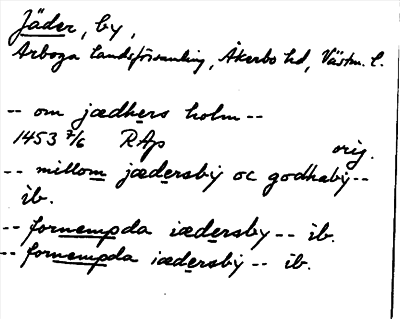 Jäder, by,
Arboga landsförsamling, Åkerbo hd, Västm. l.
-- om jædhers holm --
1453 7/6 RAp orig.
-- millom jædersby oc godhaby --
ib.
-- fornempda iædersby -- ib.
-- fornempda iædersby -- ib.